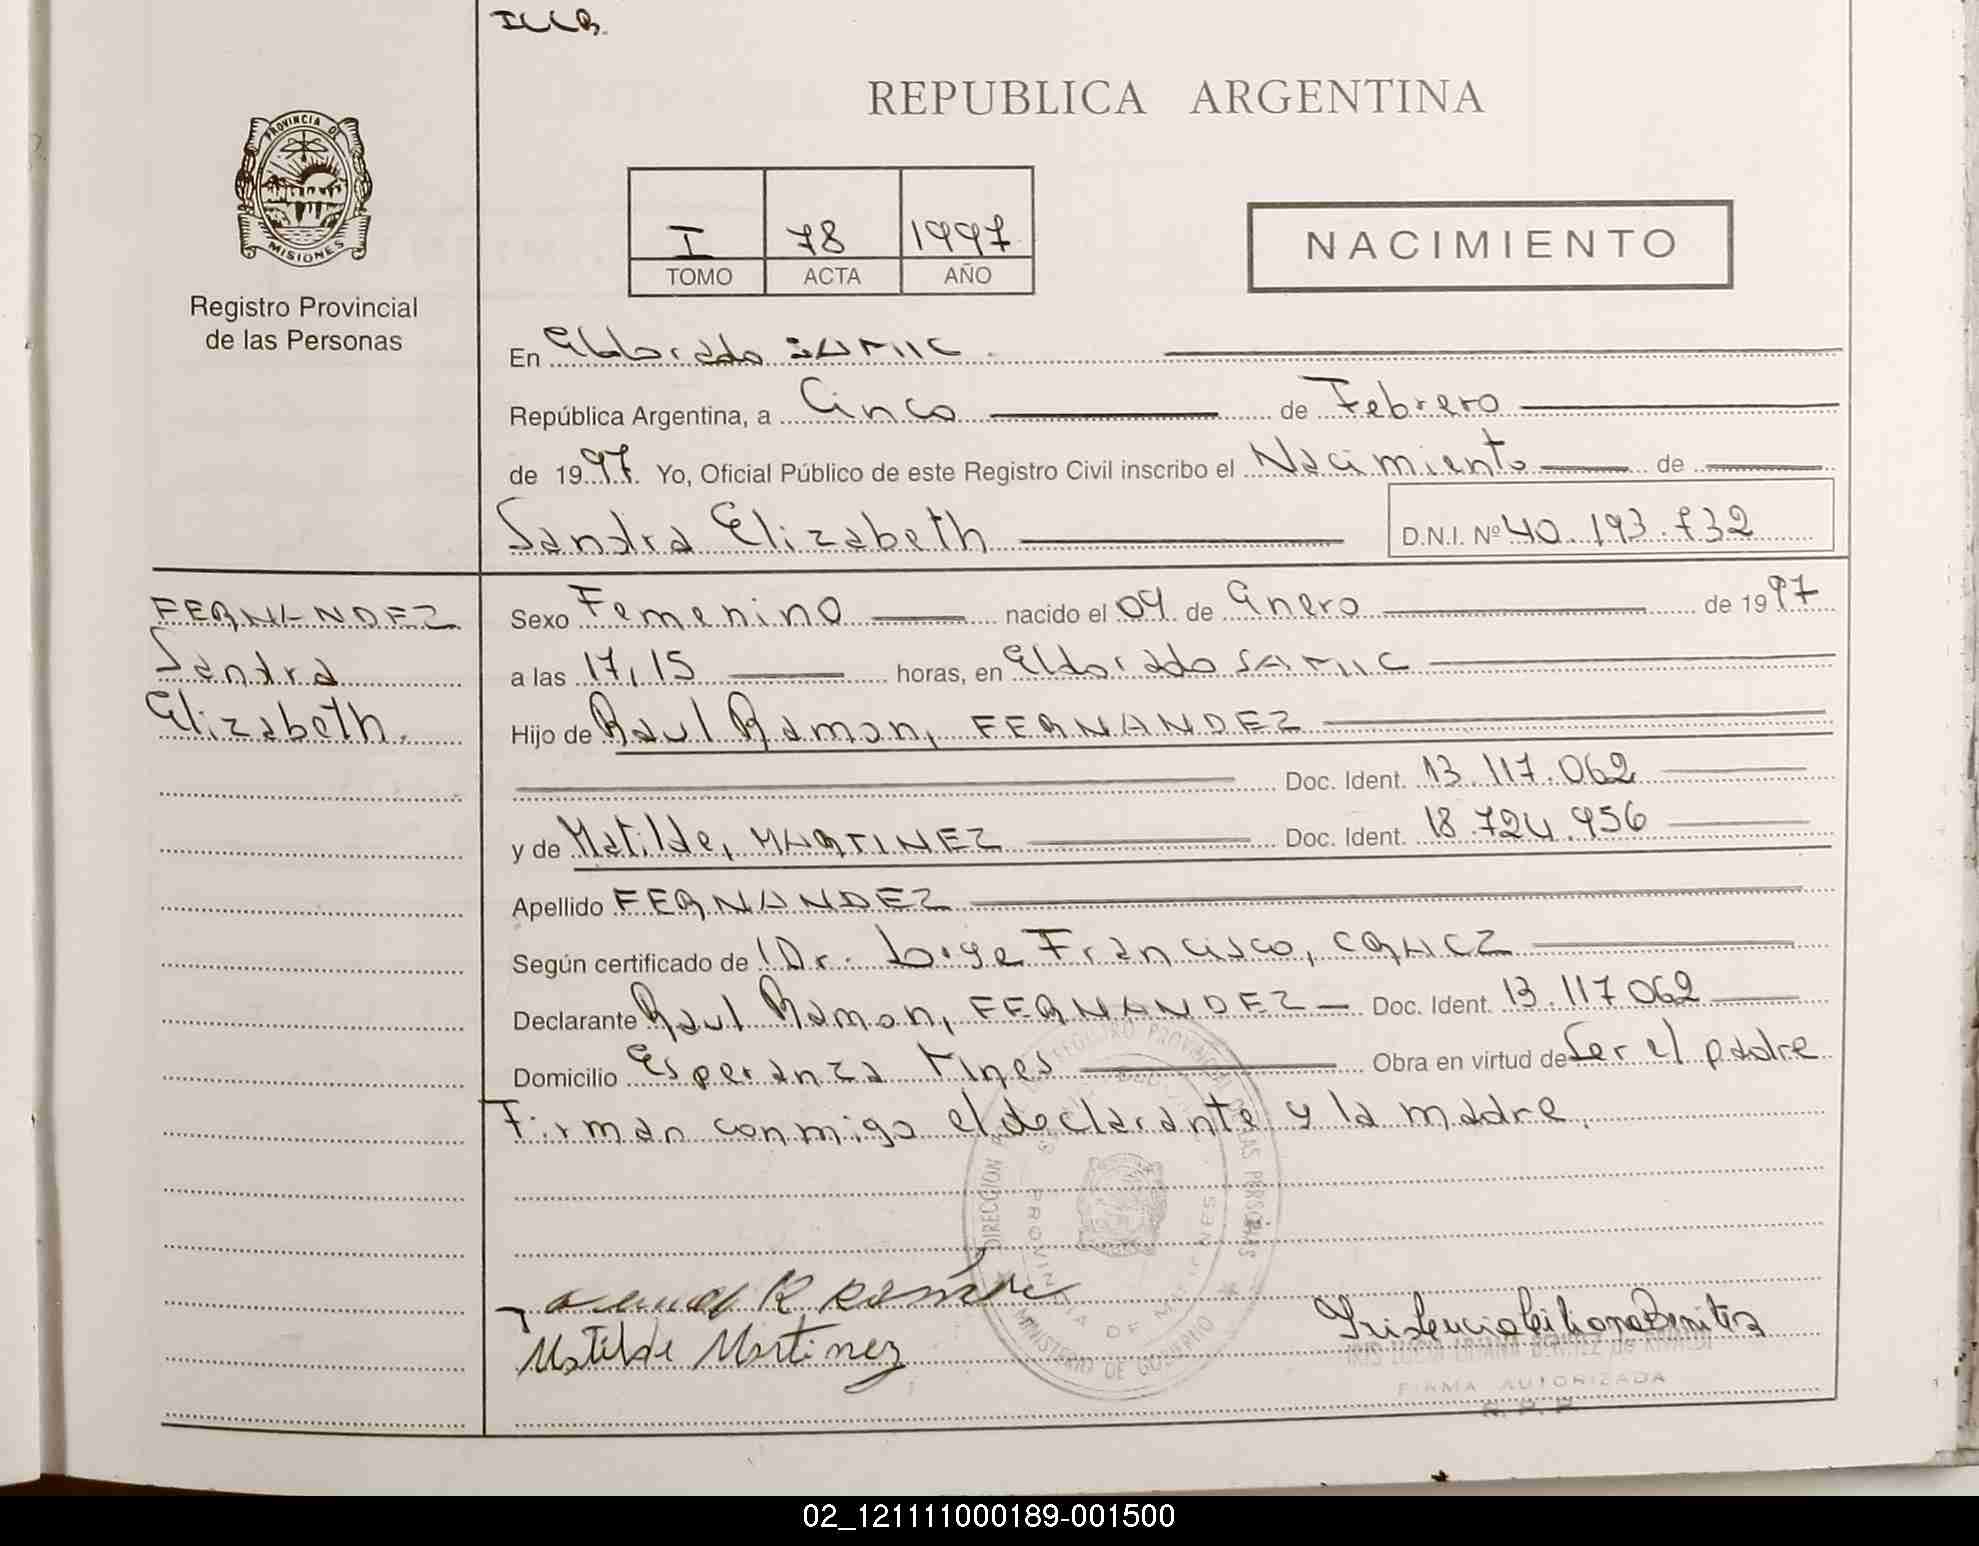 ILLB.
REPUBLICA ARGENTINA
PROVINCIA DE
MISIONES
Registro Provincial
de las Personas
I 78 1997
TOMO ACTA AÑO
NACIMIENTO
En Eldorado SAMIC
República Argentina, a Cinco de Febrero
de 1997. Yo, Oficial Público de este Registro Civil inscribo el Nacimiento de
Sandra Elizabeth D.N.I. Nº 40.193.732
FERNANDEZ
Sandra
Elizabeth.
Sexo Femenino nacido el 04 de Enero de 1997
a las 17,15 horas, en Eldorado SAMIC
Hijo de Raul Ramon, FERNANDEZ
Doc. Ident. 13.117.062
y de Matilde, MARTINEZ Doc. Ident. 18.724.956
Apellido FERNANDEZ
Según certificado de Dr. Jorge Francisco,
Declarante Raul Ramon, FERNANDEZ Doc. Ident. 13.117.062
Domicilio Esperanza Mnes Obra en virtud de Ser el padre
Firman conmigo el declarante y la madre.
DIRECCION REGISTRO PROVINCIAL DE LAS PERSONAS
PROVINCIA DE MISIONES
MINISTERIO DE GOBIERNO
Matilde Martinez
Iris Lucia Liliana Benitez
IRIS LUCIA LILIANA BENITEZ de RIVALDI
FIRMA AUTORIZADA
R. P. P.
02_121111000189-001500